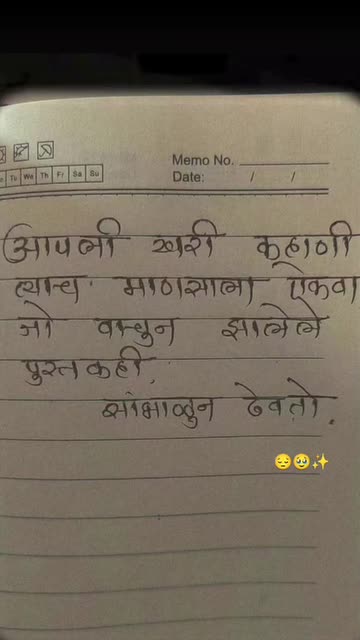 Memo No.
Tu We Th Fr Sa Su
Date: / /
आपली खरी कहाणी
त्याच माणसाला ऐकवा
जो वाचुन झालेले
पुस्तकही,
सांभाळुन ठेवतो.
😔🥹✨